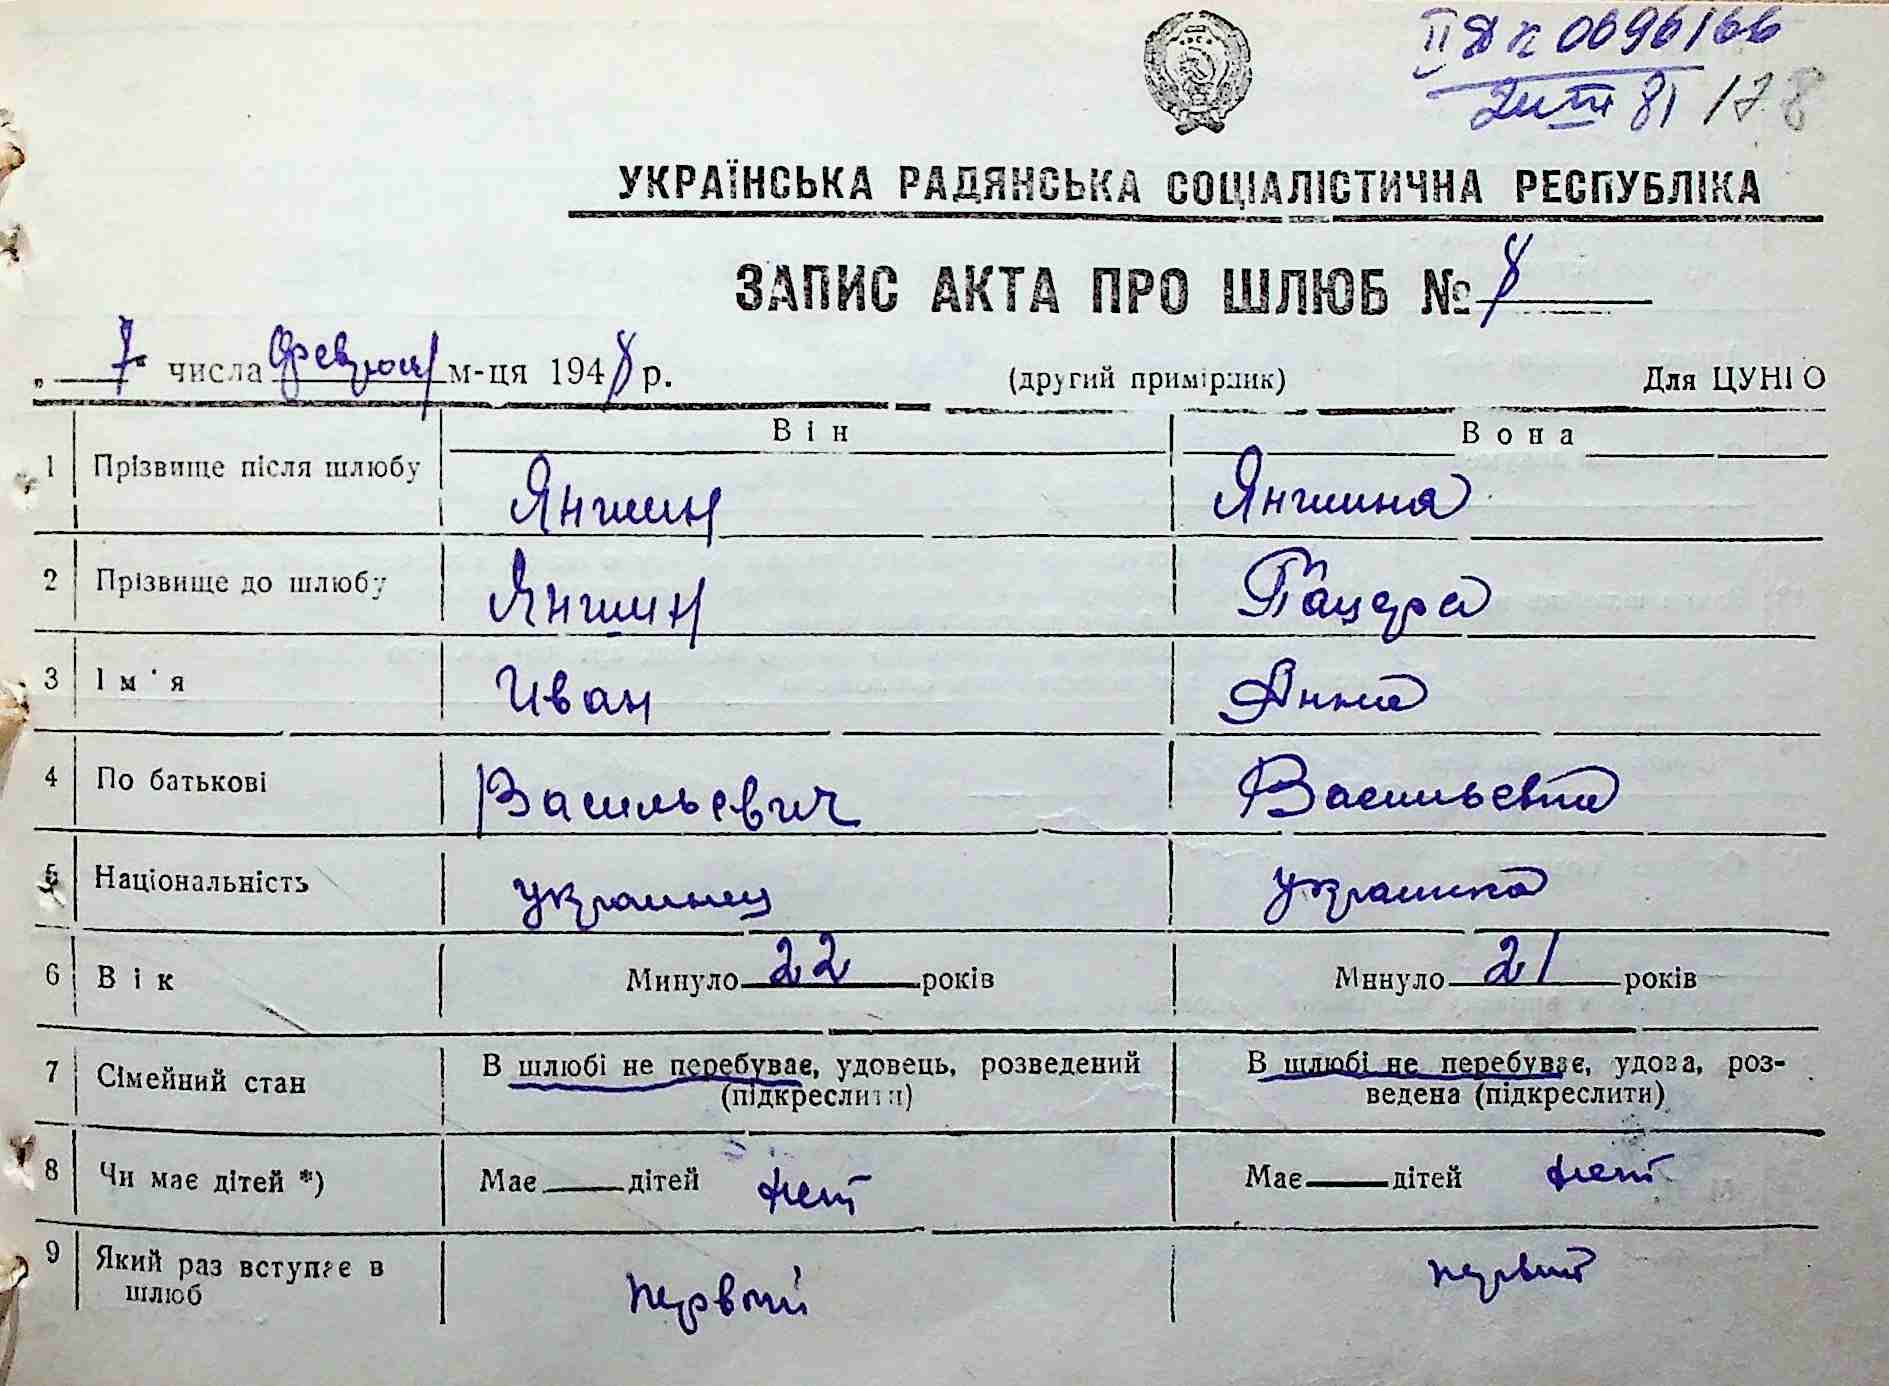 II ЯК 0696166
VIII 81 178
УКРАЇНСЬКА РАДЯНСЬКА СОЦІАЛІСТИЧНА РЕСПУБЛІКА
ЗАПИС АКТА ПРО ШЛЮБ № 8
„ 7 “ числа февраля м-ця 1948 р. (другий примірник) Для ЦУНГО
Він Вона
1 Прізвище після шлюбу Янгшин Янгшина
2 Прізвище до шлюбу Янгшин Пацера
3 Ім'я Иван Анна
4 По батькові Васильевич Васильевна
5 Національність украинец украинка
6 Вік Минуло 22 років Минуло 21 років
7 Сімейний стан В шлюбі не перебуває, удовець, розведений (підкреслити) В шлюбі не перебуває, удова, роз-
ведена (підкреслити)
8 Чи має дітей *) Має дітей нет Має дітей нет
9 Який раз вступає в
шлюб первый первый